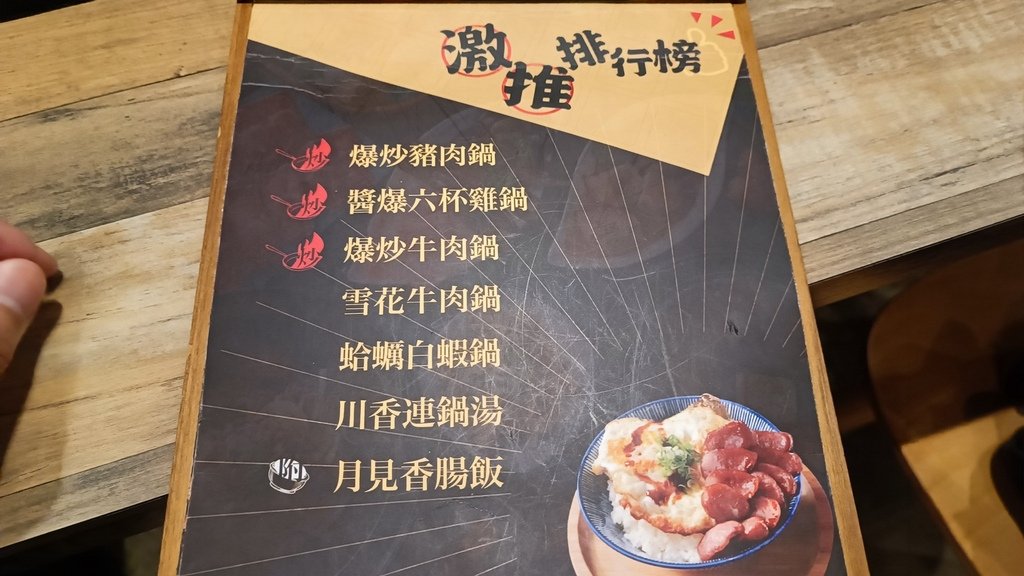 激推排行榜
炒 爆炒豬肉鍋
炒 醬爆六杯雞鍋
炒 爆炒牛肉鍋
雪花牛肉鍋
蛤蠣白蝦鍋
川香連鍋湯
月見香腸飯